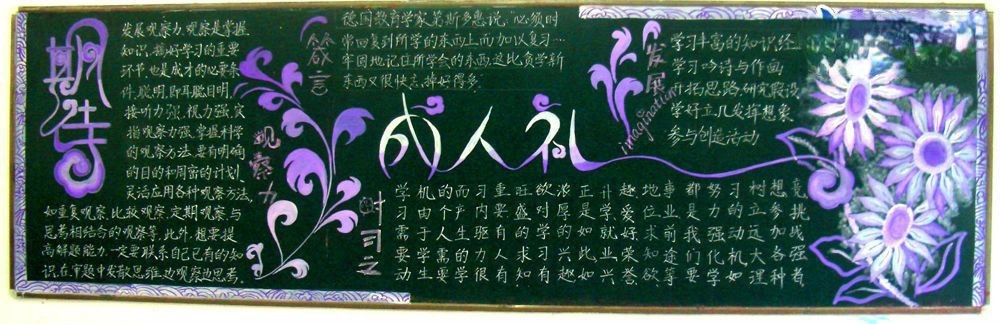 期待
发展观察力,观察是掌握
知识,搞好学习的重要
环节,也是成才的必要条
件,聪明,即耳聪目明,
接听力强,视力强,实
指观察力强,掌握科学
的观察方法,要有明确
的目的和周密的计划,
灵活应用各种观察方法,
如重复观察,比较观察,定期观察,与
思考相结合的观察等,此外,想要提
高解题能力,一定要联系自己已有的知
识,在审题中发散思维,边观察边思考.
观察力
箴言
德国教育学家第斯多惠说,"必须时
常回复到所学的东西上而加以复习…
牢固地记住所学会的东西,这比贪学新
东西又很快忘掉好得多."
成人礼
发展
imagination
学习丰富的知识经
学习吟诗与作画
开拓思路,研究假设
学好立几发挥想象
参与创造活动
时习之
学习需要动
机由于学生
的个人需要
而产生的学
习内驱力很
重要有人有
旺盛的求知
欲对学习有
浓厚的兴趣
正是如此如
学就业兴
趣爱好荣誉
地位求知欲
事业前途等
都是我们要
努力强化学
习的动机如
树立远大理
想参加各种
挑战强者